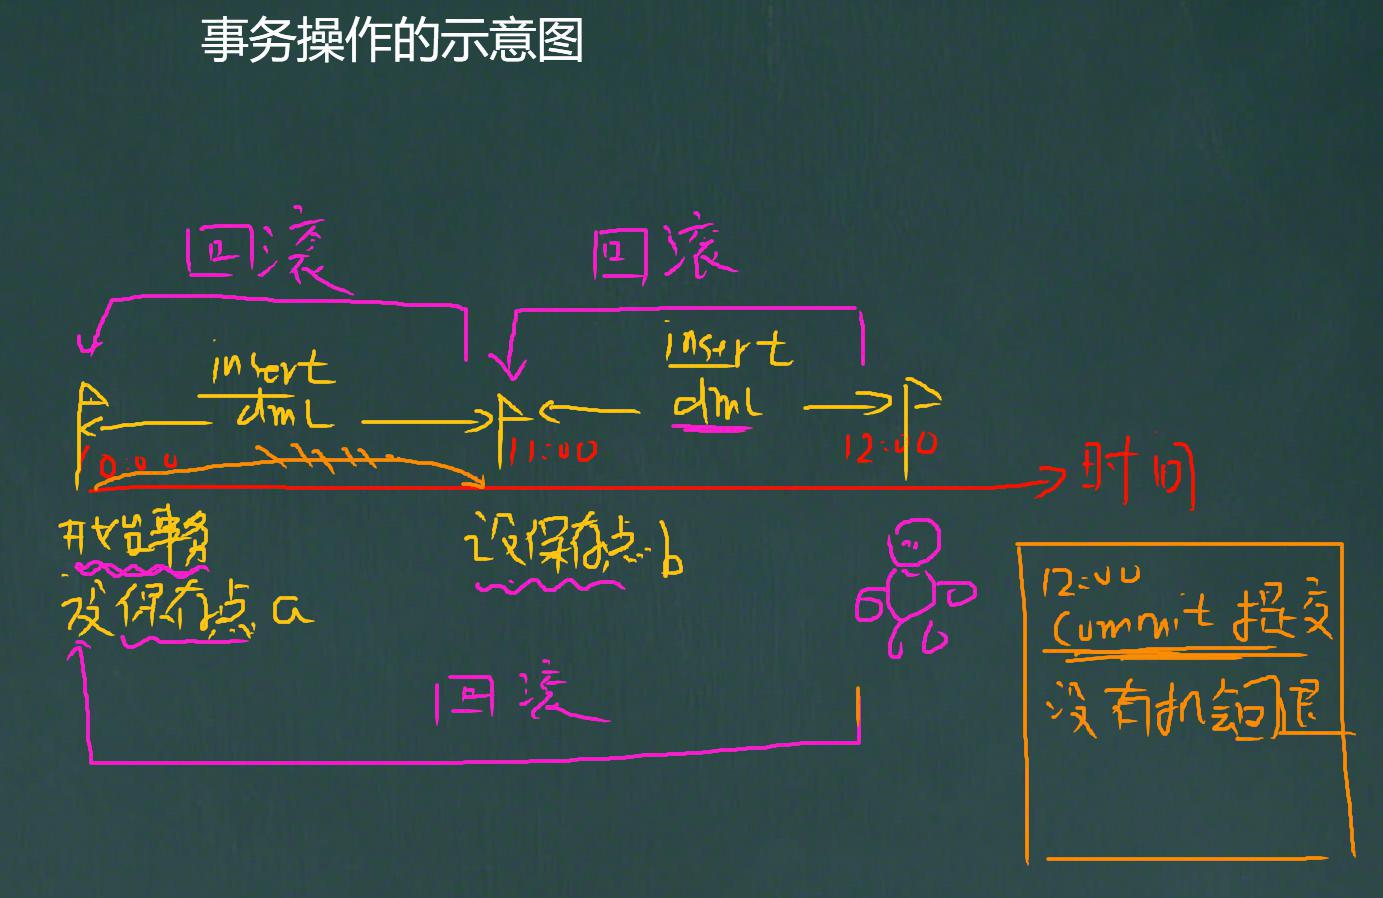 事务操作的示意图
回滚
回滚
insert
dml
insert
dml
10:00
11:00
12:00
时间
开始事务
设保存点 a
设保存点 b
回滚
12:00
commit 提交
没有机会回退